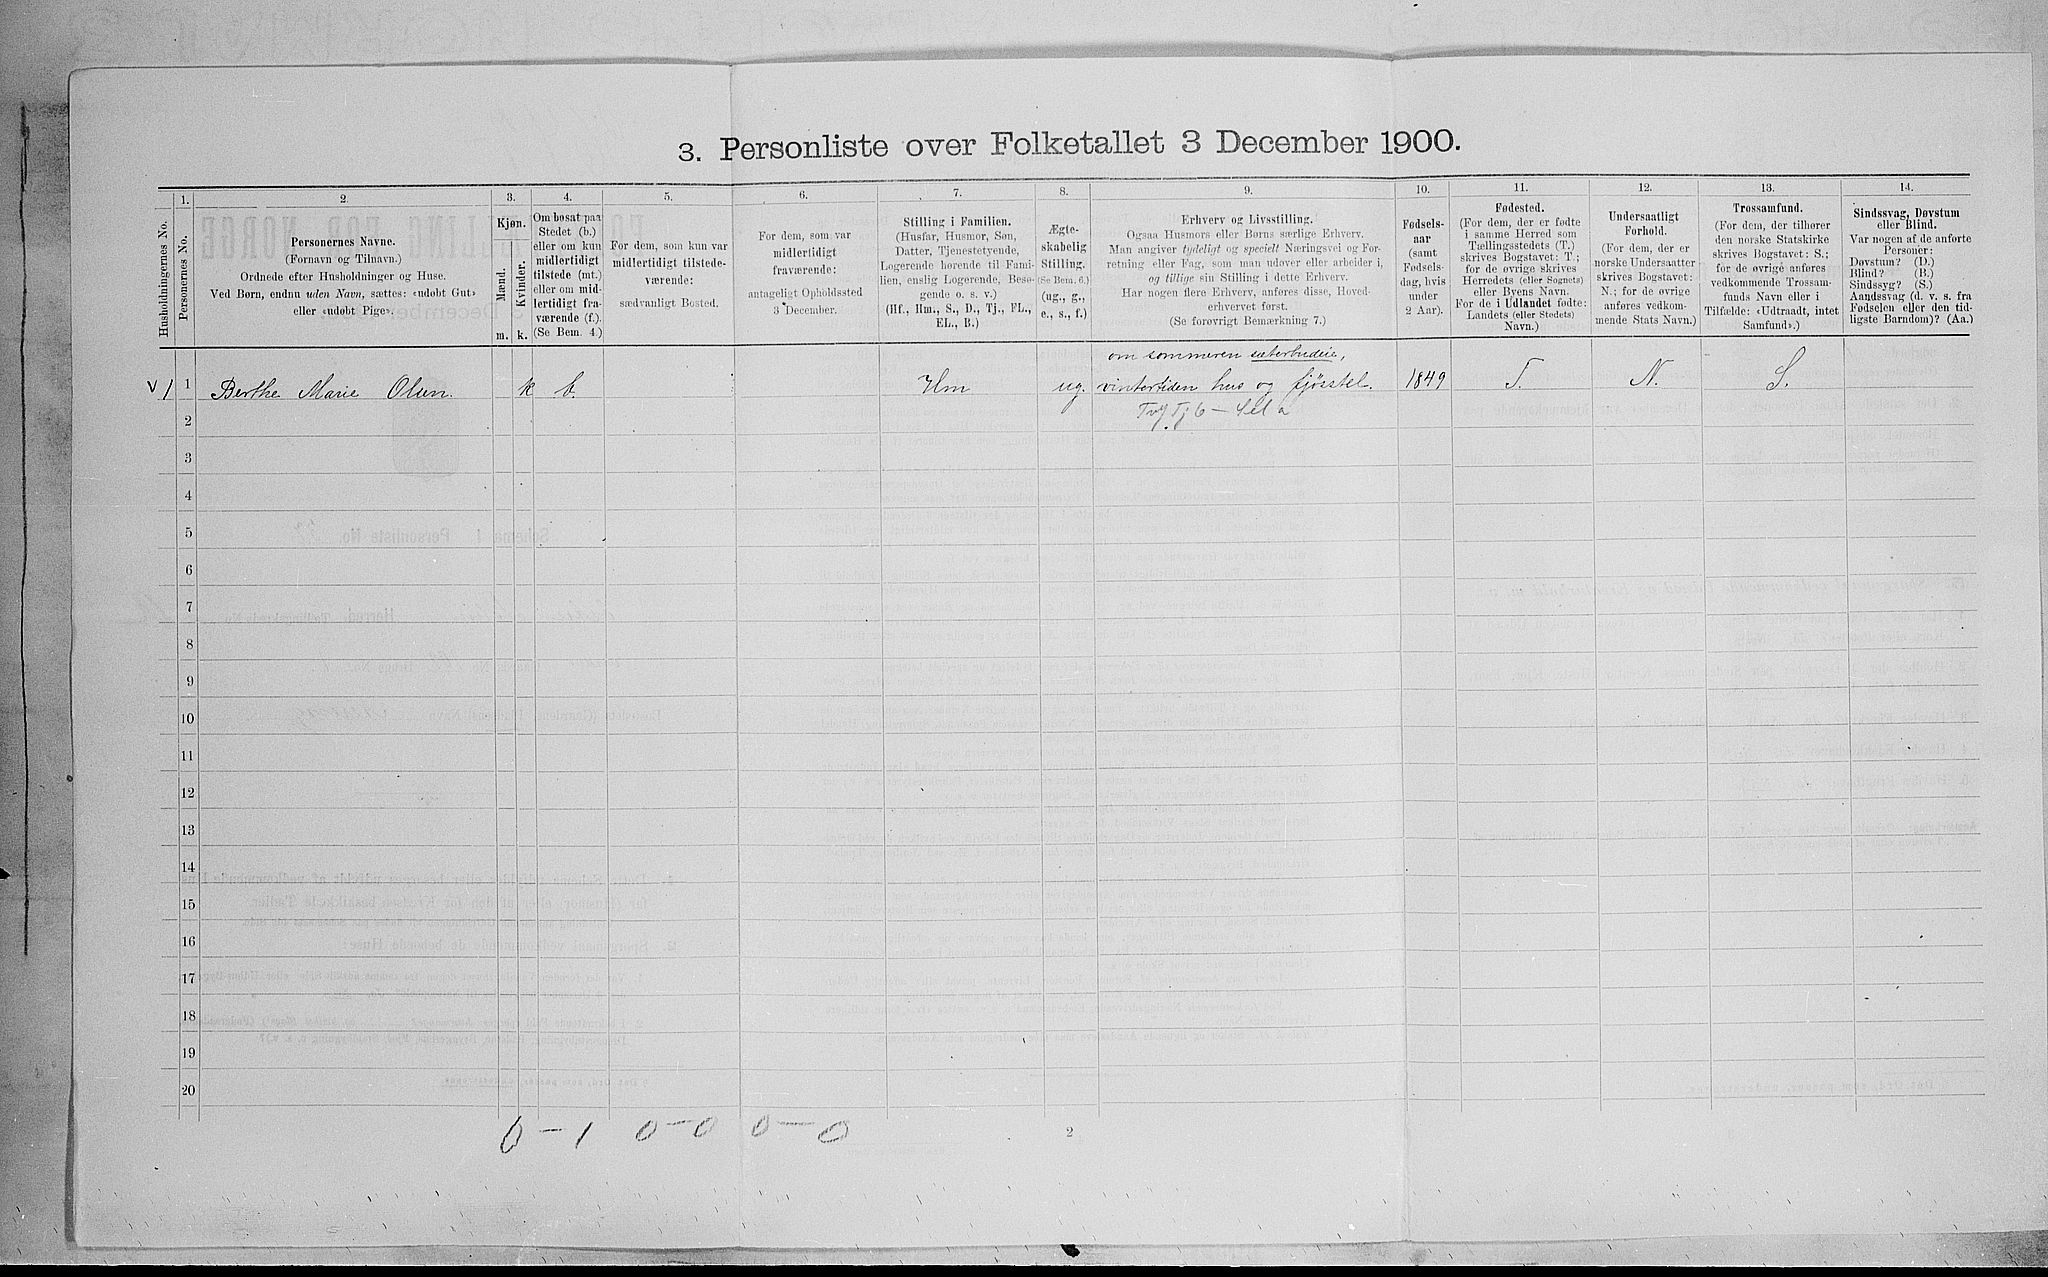 3. Personliste over Folketallet 3 December 1900.
1. 2. 3. 4. 5. 6. 7. 8. 9. 10. 11. 12. 13. 14.
Husholdningernes No.
Personernes No.
Personernes Navne.
(Fornavn og Tilnavn.)
Ordnede efter Husholdninger og Huse.
Ved Børn, endnu uden Navn, sættes: «udøbt Gut»
eller «udøbt Pige».
Kjøn.
Mænd.
Kvinder.
m. k.
Om bosat paa
Stedet (b.)
eller om kun
midlertidigt
tilstede (mt.)
eller om mid-
lertidigt fra-
værende (f.).
(Se Bem. 4.)
For dem, som kun var
midlertidigt tilstede-
værende:
sædvanligt Bosted.
For dem, som var
midlertidigt
fraværende:
antageligt Opholdssted
3 December.
Stilling i Familien.
(Husfar, Husmor, Søn,
Datter, Tjenestetyende,
Logerende hørende til Fami-
lien, enslig Logerende, Besø-
gende o. s. v.)
(Hf., Hm., S., D., Tj., FL.,
EL., B.)
Ægte-
skabelig
Stilling.
(Se Bem. 6.)
(ug., g.,
e., s., f.)
Erhverv og Livsstilling.
Ogsaa Husmors eller Børns særlige Erhverv.
Man angiver tydeligt og specielt Næringsvei og For-
retning eller Fag, som man udøver eller arbeider i,
og tillige sin Stilling i dette Erhverv.
Har nogen flere Erhverv, anføres disse, Hoved-
erhvervet først.
(Se forøvrigt Bemærkning 7.)
Fødsels-
aar
(samt
Fødsels-
dag, hvis
under
2 Aar).
Fødested.
(For dem, der er fødte
i samme Herred som
Tællingsstedets (T.)
skrives Bogstavet: T.;
for de øvrige skrives
Herredets (eller Sognets)
eller Byens Navn.
For de i Udlandet fødte:
Landets (eller Stedets)
Navn.)
Undersaatligt
Forhold.
(For dem, der er
norske Undersaatter
skrives Bogstavet:
N.; for de øvrige
anføres vedkom-
mende Stats Navn.)
Trossamfund.
(For dem, der tilhører
den norske Statskirke
skrives Bogstavet: S.;
for de øvrige anføres
vedkommende Trossam-
funds Navn eller i
Tilfælde: «Udtraadt, intet
Samfund».)
Sindssvag, Døvstum
eller Blind.
Var nogen af de anførte
Personer:
Døvstum? (D.)
Blind? (B.)
Sindssyg? (S.)
Aandssvag (d. v. s. fra
Fødselen eller den tid-
ligste Barndom)? (Aa.)
om sommeren sæterbudeie,
v 1 1 Berthe Marie Olsen. k b. Hm ug. vintertiden hus og fjøsstel. 1849 T. N. S.
2
3
4
5
6
7
8
9
10
11
12
13
14
15
16
17
18
19
20
0 – 1 0 – 0 0 – 0
2